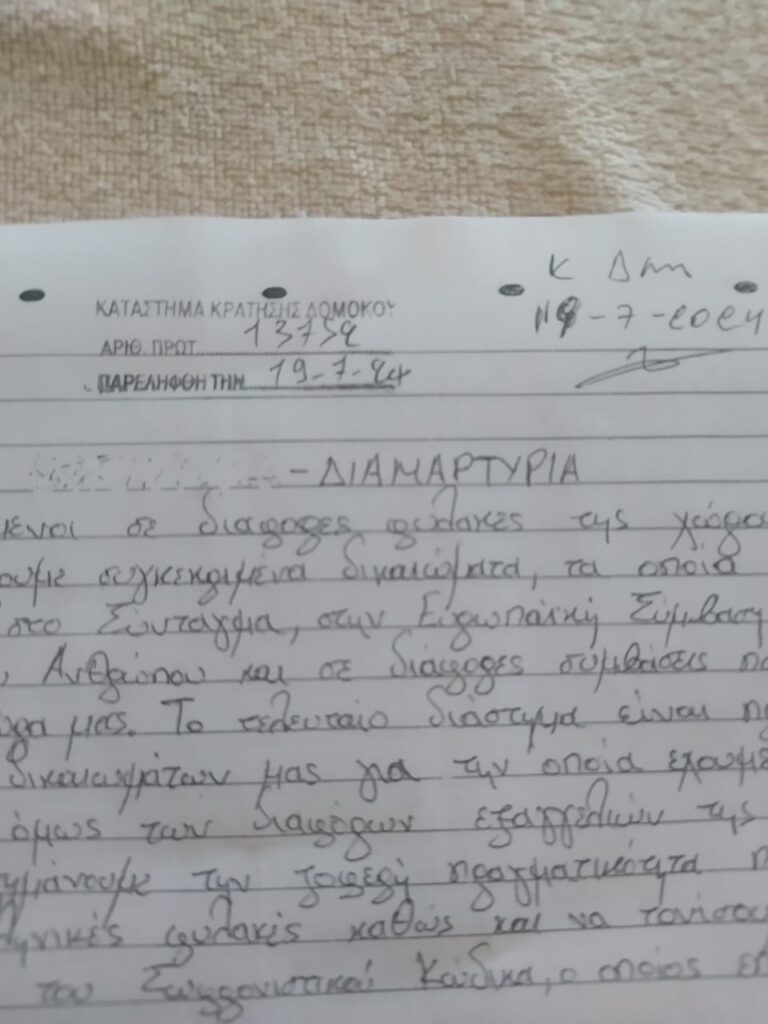 Κ Δ
ΚΑΤΑΣΤΗΜΑ ΚΡΑΤΗΣΗΣ ΔΟΜΟΚΟΥ
19-7-2024
ΑΡΙΘ. ΠΡΩΤ. 13752
ΠΑΡΕΛΗΦΘΗ ΤΗΝ 19-7-24
-ΔΙΑΜΑΡΤΥΡΙΑ
μενοι σε διάφορες φυλακές της χώρα
ουμε συγκεκριμένα δικαιώματα, τα οποία
στο Σύνταγμα, στην Ευρωπαϊκή Σύμβαση
Ανθρώπου και σε διάφορες συμβάσεις πο
ώρα μας. Το τελευταίο διάστημα είναι
δικαιωμάτων μας για την οποία έχουμε
όμως των διαφόρων εξαγγελιών της
υμάνουμε την ζοφερή πραγματικότητα π
ληνικές φυλακές καθώς και να τονίσου
του Σωφρονιστικού Κώδικα, ο οποίος επ